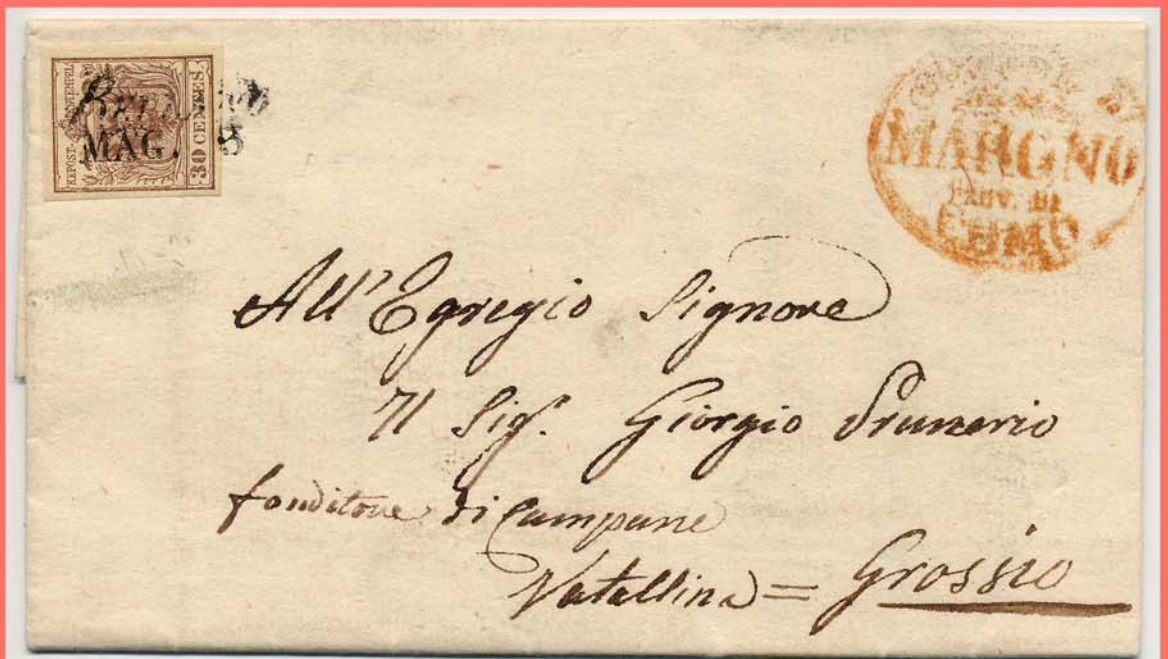 KKPOST-STEMPEL
30 CENTES.
MAG. 8
MARGNO
PROV. DI
COMO
All'Egregio Signore
Il Sigr. Giorgio Prunerio
fonditore di Campane
Valtellina = Grossio